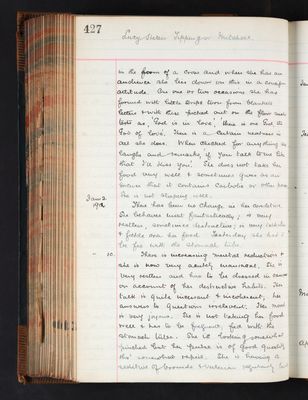 427
Lucy
in the form of a cross and when she has an
audience she lies down on this in a
attitude. On one or two occasions she has
formed with little strips torn from blankets
letters & with these picked out on the floor such
texts as, 'God is in love', 'this is our God, the
God of love'. There is a certain neatness in
all she does. When checked for anything she
laughs and remarks, if you talk to me like
that I'll kiss you. She does not take her
food very well & sometimes gives as an
excuse that it contains Carbolic or other
She is not sleeping well.
June 2 There has been no change in her condition.
She behaves most fantastically, is very
restless, sometimes destructive, is very
& fiddles over her food. Yesterday she had to
be fed with the stomach tube.
- 10. There is increasing mental reduction &
she is now very acutely maniacal. She is
very restless and has to be dressed in canvas
on account of her destructive habits. Her
talk is quite incessant & incoherent, her
answers to questions irrelevant. Her mood
is very joyous. She is not taking her food
well & has to be frequently fed with the
stomach tube. She is looking somewhat
pinched but her pulse is of good quality
tho' somewhat rapid. She is having a
of bromide & valerian regularly but